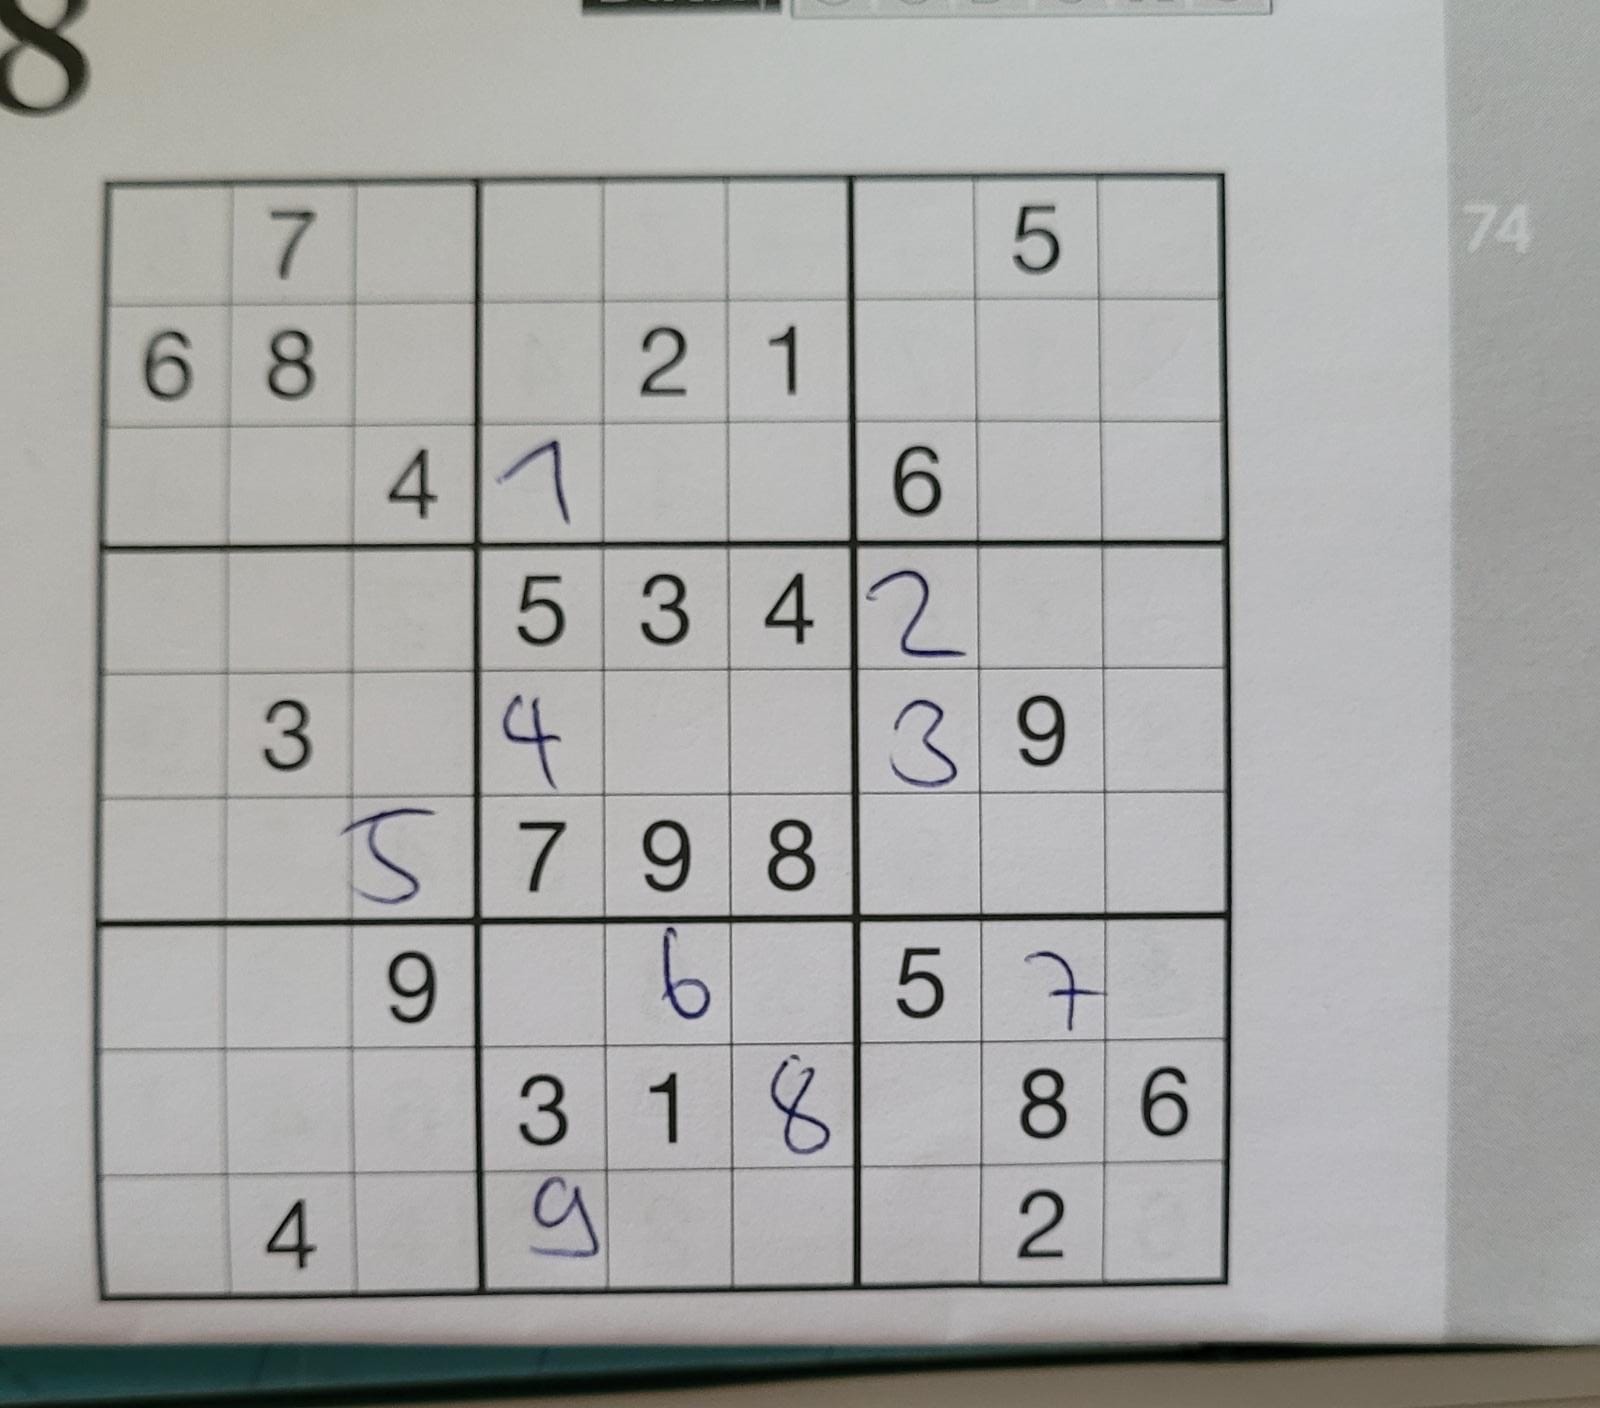 8
7 5
74
6 8 2 1
4 1 6
5 3 4 2
3 4 3 9
5 7 9 8
9 6 5 7
3 1 8 8 6
4 9 2